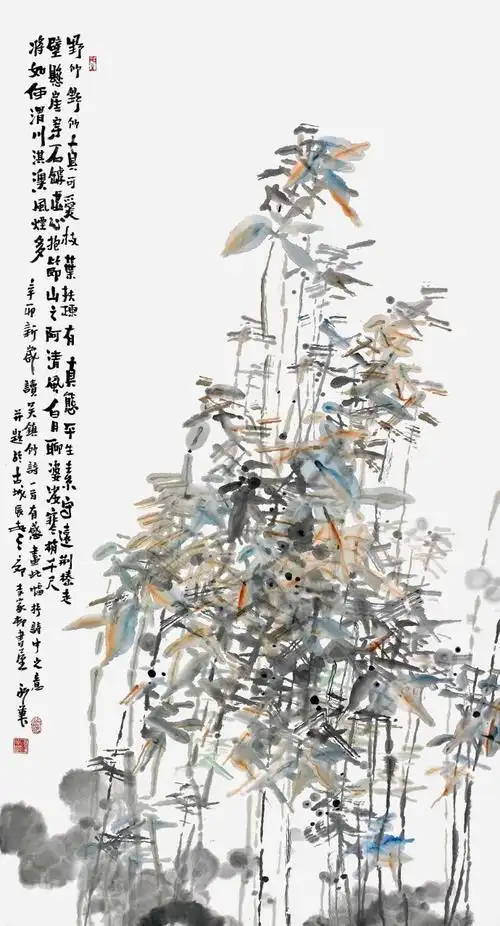 野竹野竹真可愛枝葉扶疎有真態平生素守遠荆榛走
壁懸崖穿石罅虛心抱節山之阿清風白月聊婆娑寒梢千尺
將如何渭川淇澳風煙多
辛卯新歲讀吴鎮竹詩一首有感畫此幅抒詩中之意
并題於古城長安之李家村書屋